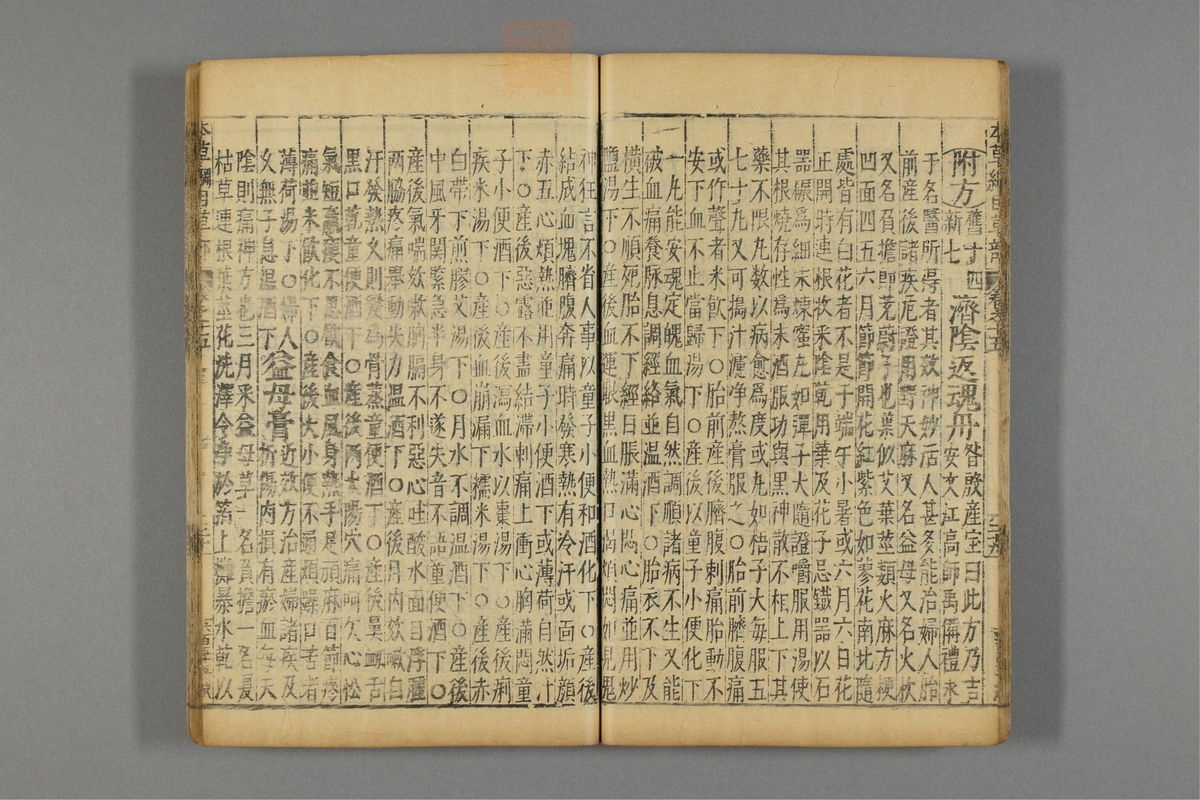 附方舊十四新七濟陰返魂丹昝殷產宝曰此方乃吉
安文江高師禹備禮求
于名醫所得者其效神妙活人甚多能治婦人胎
前産後諸疾危證用野天麻又名益母又名火杴
又名負擔即茺蔚子也葉似艾葉莖類火麻方梗
凹面四五六月節節開花紅紫色如蓼花南北隨
處皆有白花者不是于端午小暑或六月六日花
正開時連根收采陰乾用葉及花子忌鐵器以石
器碾爲細末煉蜜丸如彈子大隨證嚼服用湯使
其根燒存性爲末酒服功與黑神散不相上下其
藥不限丸數以病愈爲度或丸如梧子大每服五
七十丸又可搗汁濾净熬膏服之○胎前臍腹痛
或作聲者米飲下○胎前産後臍腹刺痛胎動不
安下血不止當歸湯下○産後以童子小便化下
一丸能安魂定魄血氣自然調順諸病不生又能
破血痛養脉息調經絡並温酒下○胎衣不下及
橫生不順死胎不下經日脹滿心悶心痛並用炒
鹽湯下○産後血運眼黑血熱口渴煩悶如見鬼
神狂言不省人事以童子小便和酒化下○産後
結成血塊臍腹奔痛時發寒熱有冷汗或面垢顔
赤五心煩熱並用童子小便酒下或薄荷自然汁
下○産後惡露不盡結滯刺痛上衝心胸滿悶童
子小便酒下○産後瀉血水以棗湯下○産後痢
疾米湯下○産後血崩漏下糯米湯下○産後赤
白帶下煎膠艾湯下○月水不調温酒下○産後
中風牙關緊急半身不遂失音不語童便酒下○
産後氣喘欬嗽胸膈不利惡心吐酸水面目浮腫
兩脇疼痛舉動失力温酒下○産後月内欬嗽自
汗發熱久則變爲骨蒸童便酒下○産後鼻衄舌
黑口乾童便酒下○産後兩太陽穴痛呵欠心忪
氣短羸瘦不思飲食血風身熱手足頑麻百節疼
痛並米飲化下○産後大小便不通煩躁口苦者
薄荷湯下○婦人久無子息温酒下益母膏近效方治産婦諸疾及
折傷内損有瘀血每天
陰則痛神方也三月采益母草一名負擔一名夏
枯草連根葉莖花洗擇令净於箔上攤暴水乾以